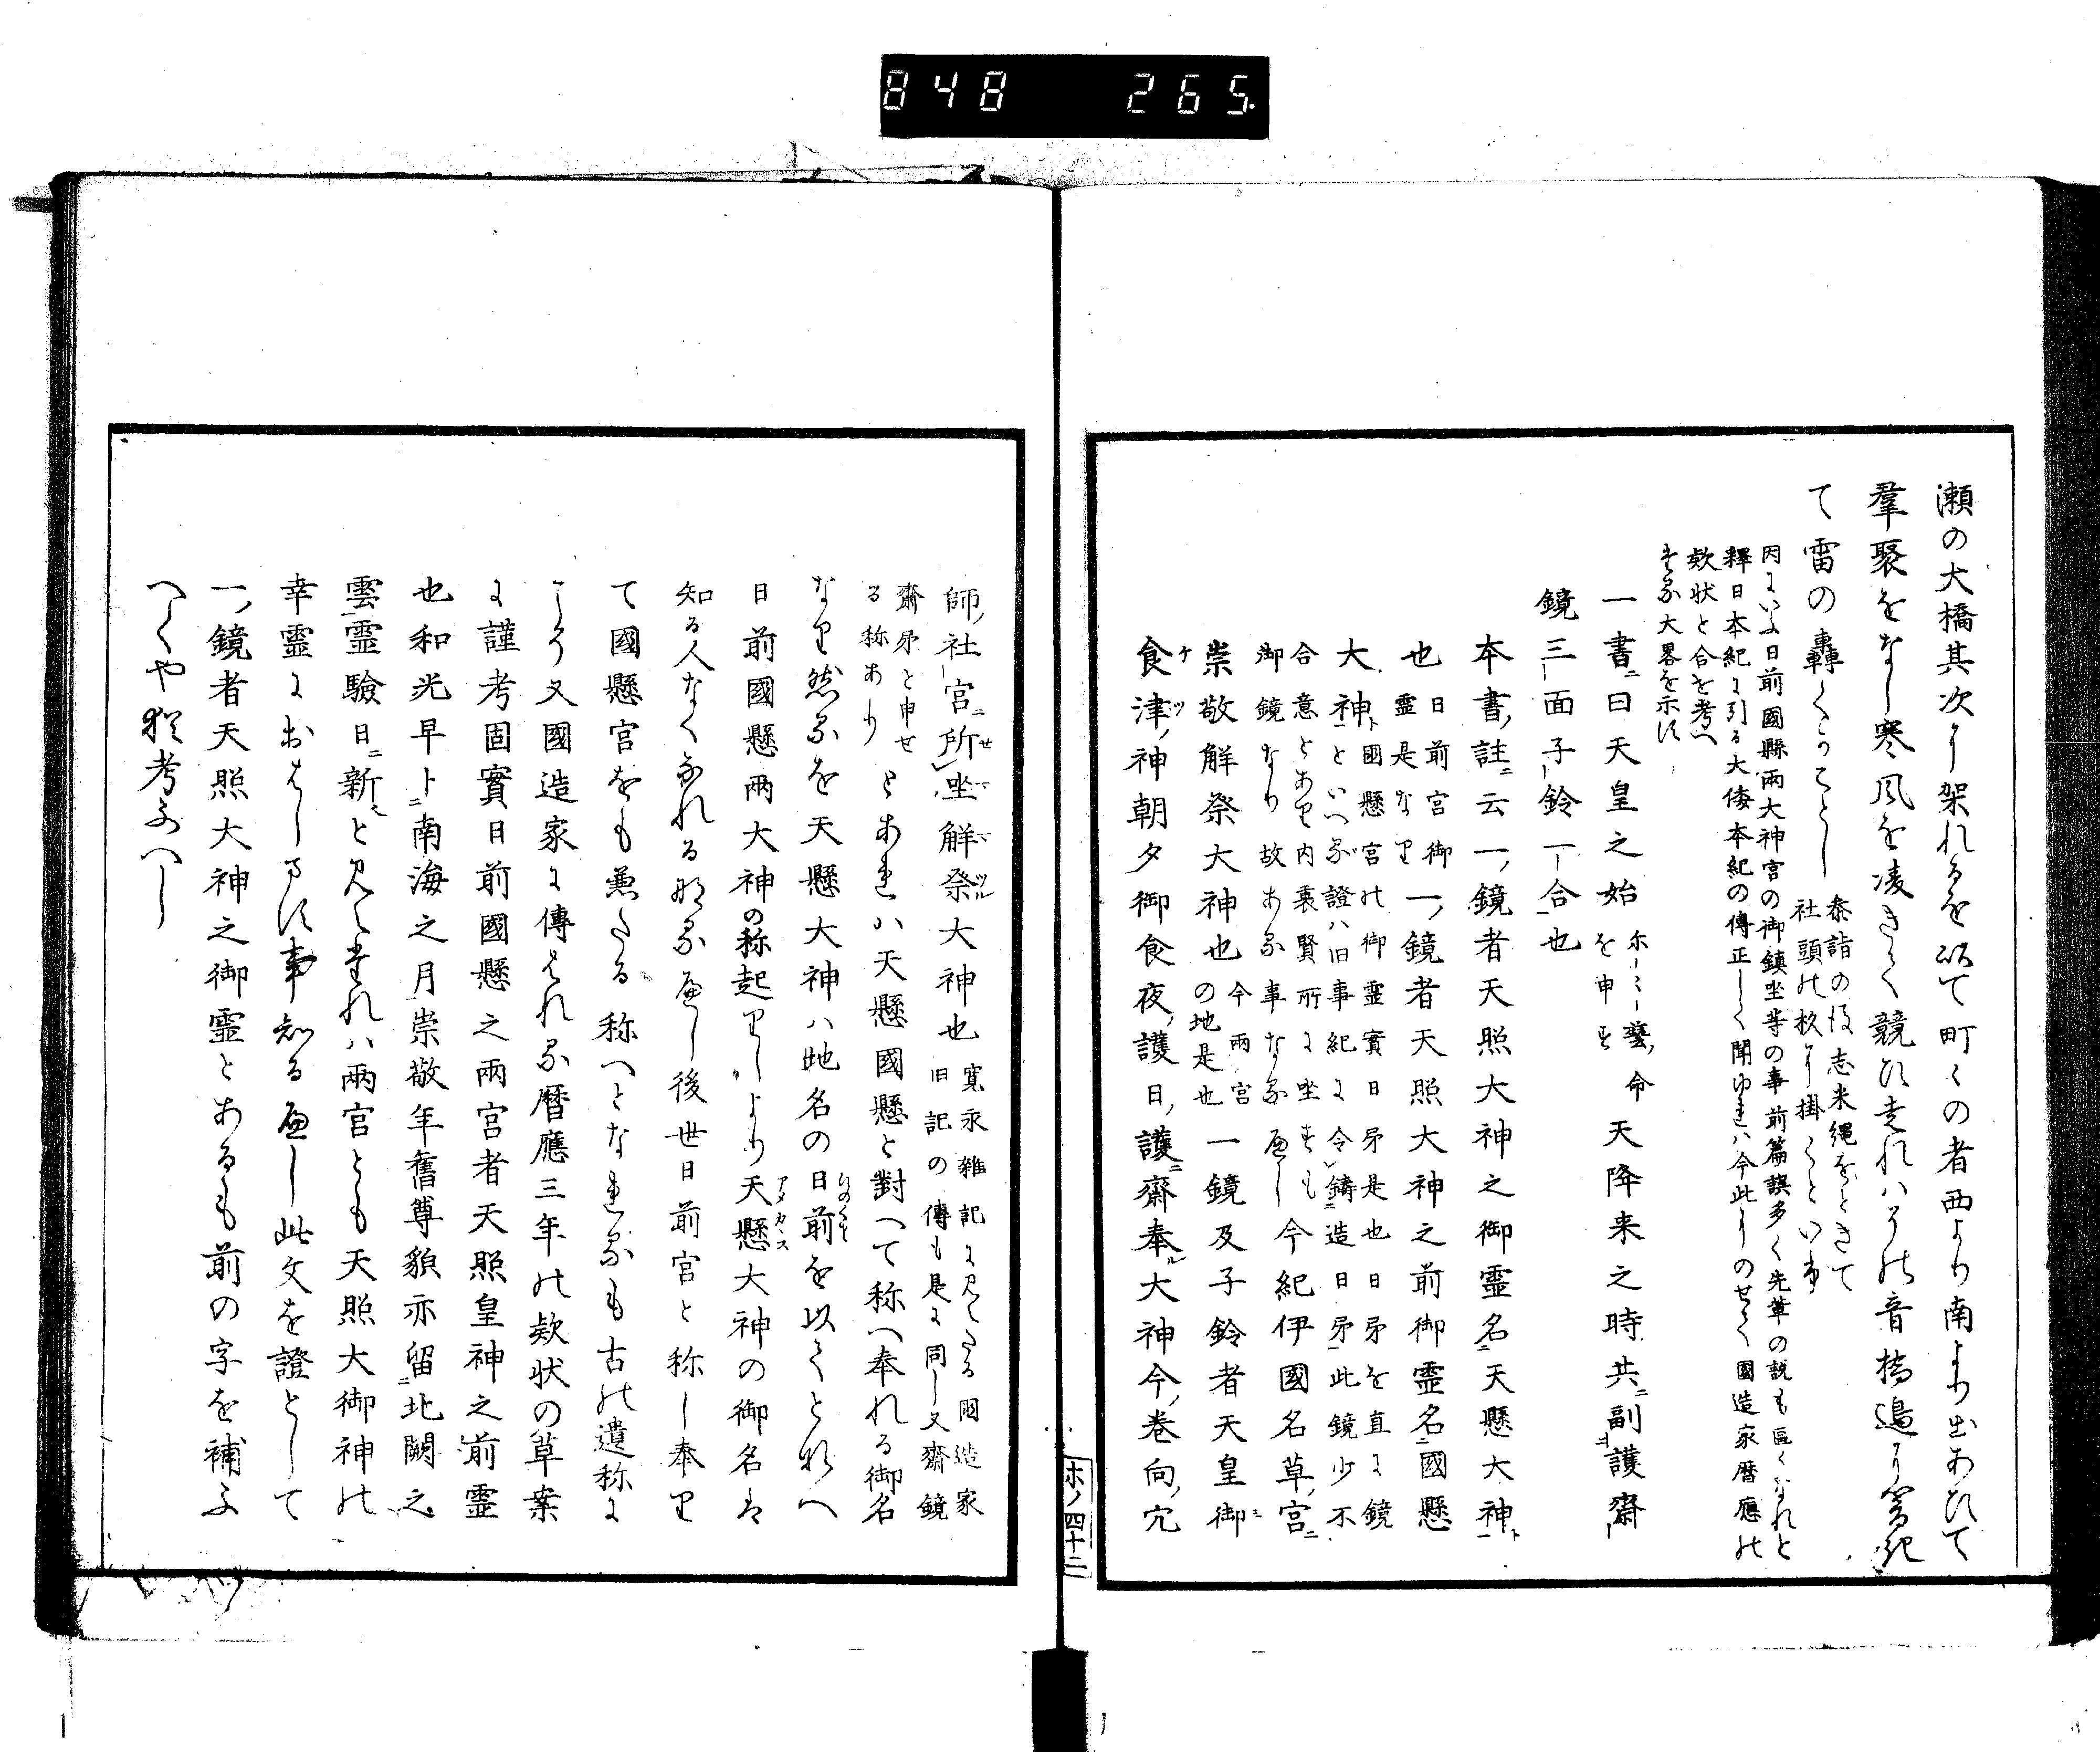 848 265
瀬の大橋其次に架れるを以て町くの者西より南より出あひて
羣聚をなし寒風を凌きて競ひ走れハその音橋邉に響き
て雷の轟くかことし
参詣の後志米縄をときて
社頭の杦に掛くといふ
因にいふ日前國縣兩大神宮の御鎮坐等の事前篇誤多く先輩の説も區くなれと
釋日本紀に引る大倭本紀の傳正しく聞ゆれハ今此にのせて國造家暦應の
欵状と合せ考へ
大畧を示す
一書曰天皇之始
天降来之時共副護齋
鏡三面子鈴一合也
本書註云一鏡者天照大神之御霊名天懸大神
也
日前宮御
霊是なり
一鏡者天照大神之前御霊名國懸
大神
國懸宮の御霊實日矛是也日矛を直に鏡
といへる證ハ旧事紀に令鑄造日矛此鏡少不
合意とあり内裏賢所に坐も
御鏡なり故ある事なるへし
今紀伊國名草宮
崇敬解祭大神也
今兩宮
の地是也
一鏡及子鈴者天皇御
食津神朝夕御食夜護日護齋奉大神今巻向穴
ホノ四十二
師社宮所坐解祭大神也
寛永雑記に見えたる國造家
旧記の傳も是に同し又齋鏡
齋矛と申せ
る称あり
とあれハ天懸國懸と對へて称へ奉れる御名
なり然るを天懸大神ハ地名の日前を以てとなへ
日前國懸兩大神の称起りしより天懸大神の御名は
知る人なくなれるなるへし後世日前宮と称し奉り
て國懸宮をも兼たる称へとなれるも古の遺称に
こそ又國造家に傳はれる暦應三年の欵状の草案
に謹考固實日前國懸之兩宮者天照皇神之前霊
也和光早卜南海之月崇敬年舊尊貌亦留北闕之
雲霊驗日新と見えたれハ兩宮とも天照大御神の
幸霊におはします事知るへし此文を證として
一鏡者天照大神之御霊とあるも前の字を補ふ
へくや猶考ふへし